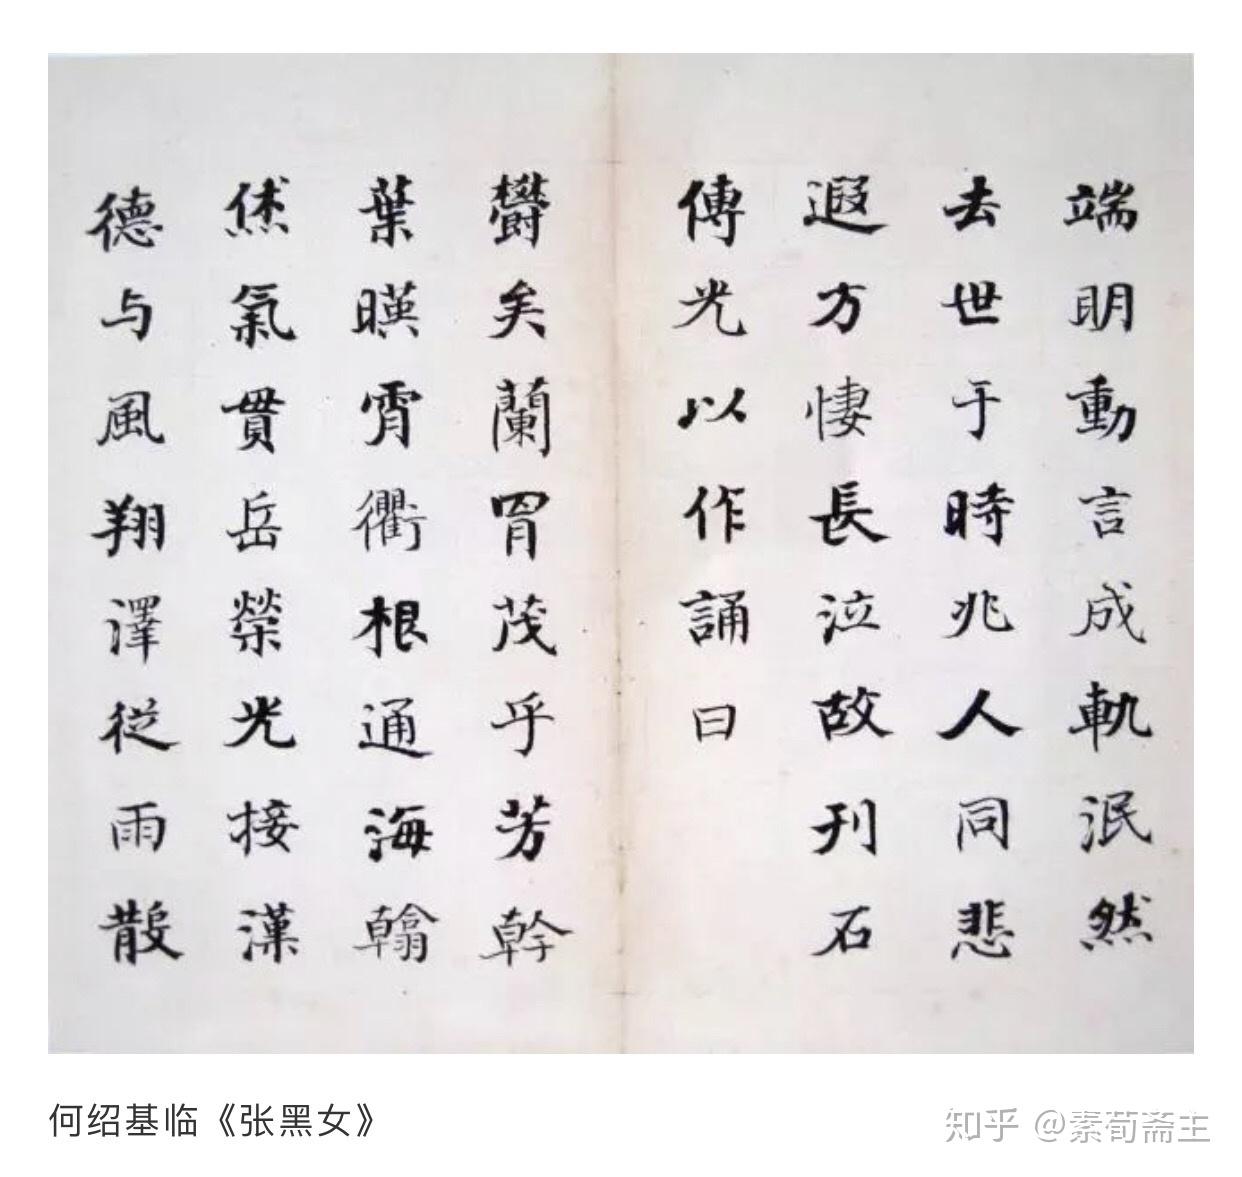 端明動言成軌泯然
去世于時兆人同悲
遐方悽長泣故刊石
傳光以作誦曰
欝矣蘭胄茂乎芳幹
葉暎霄衢根通海翰
烋氣貫岳榮光接漢
德与風翔澤従雨散
何绍基临《张黑女》
知乎 @素荀斋主